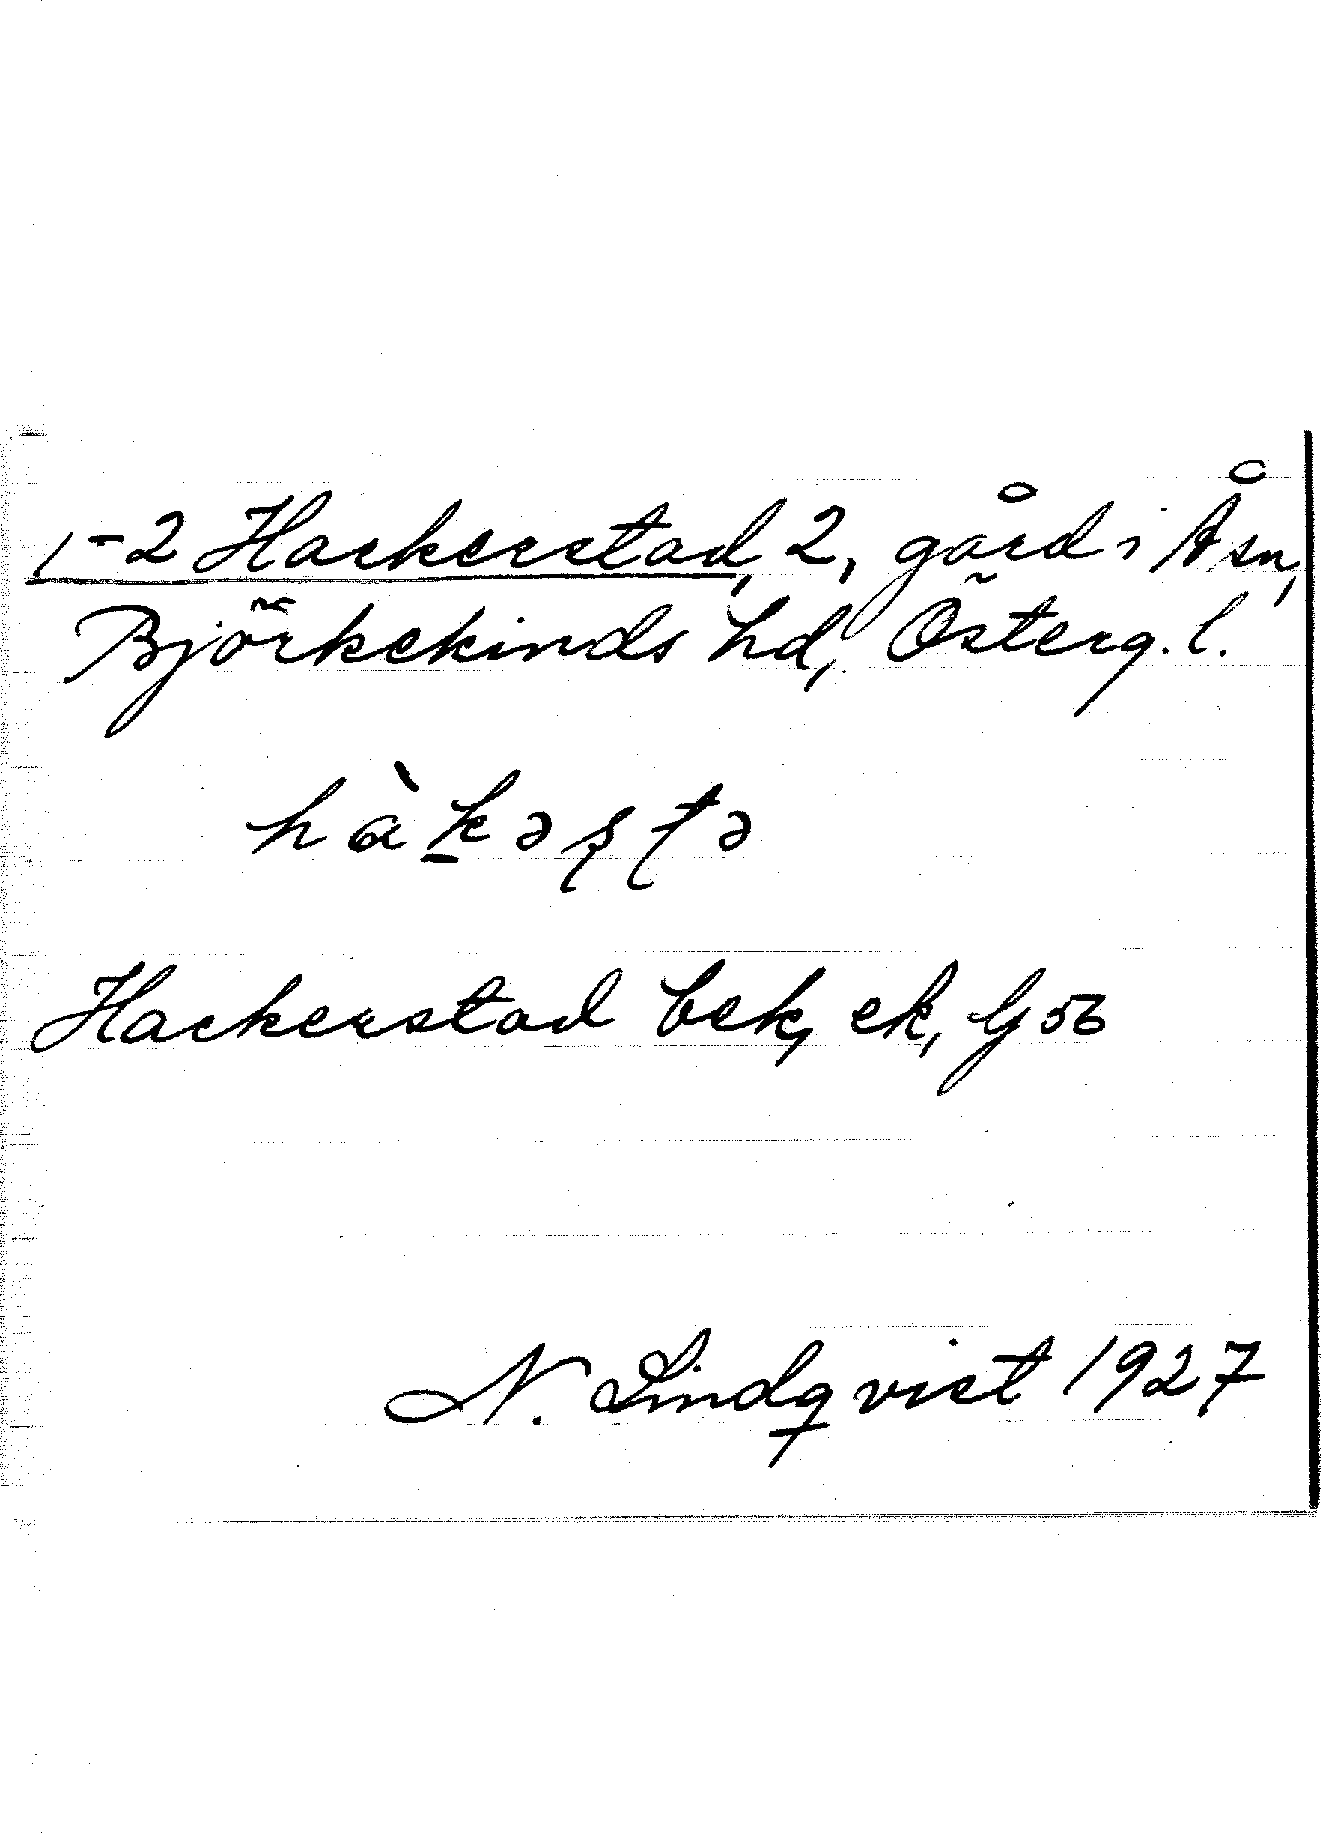 1-2 Hackerstad, 2, gård i Å sn,
Björkekinds hd, Österg. l.
hàk̲əʂʈə
Hackerstad bek, ek, G 56
N. Lindqvist 1927